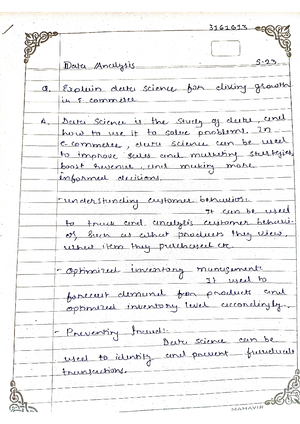 3161613
Data Analysis S-23
Q. Explain data science for driving growth
in E-commerce
A. Data Science is the study of data, and
how to use it to solve problems. In
e-commerce, data science can be used
to improve sales and marketing strategies,
boost revenue, and making more
informed decisions.
- understanding customer behavior:-
It can be used
to track and analysis customer behavi-
or such as what products they view,
what item they purchased etc.
- Optimized inventory management:-
It used to
forecast demand for products and
optimized inventory level accordingly.
- Preventing fraud:-
Data science can be
used to identify and prevent fraudual
transactions.
MAHAVIR